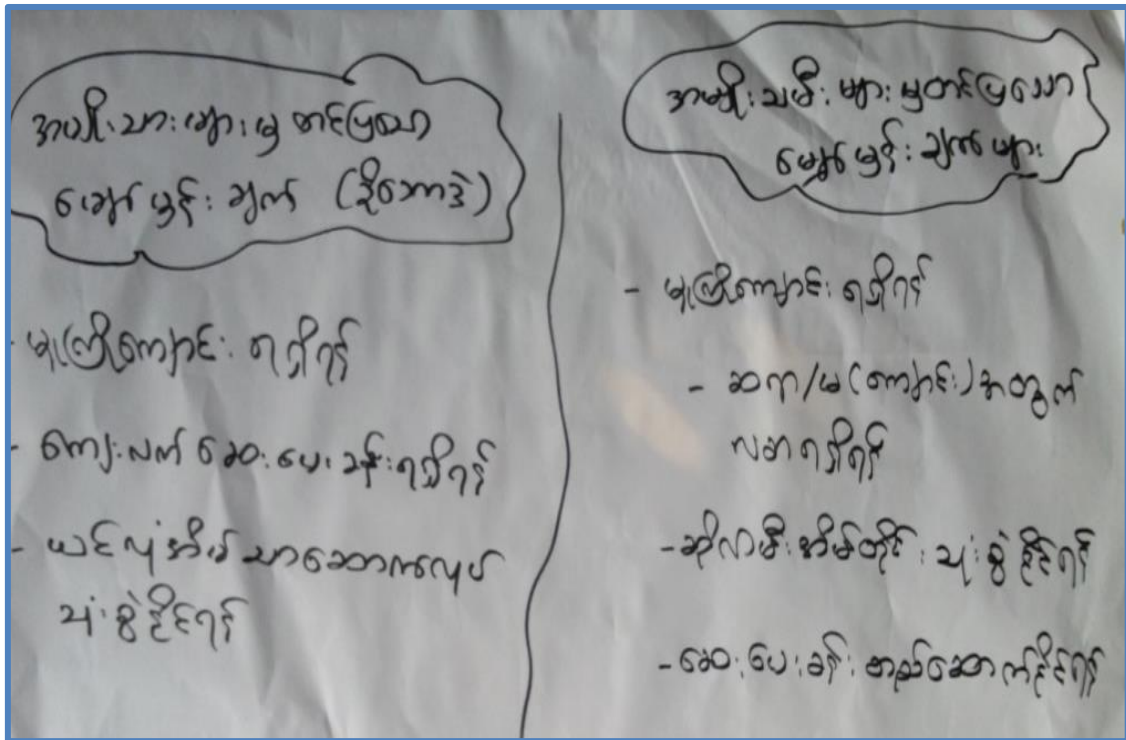 အမျိုးသားများမှ တင်ပြသော
မျှော်မှန်းချက် (ဒိုးဘောဒဲ)
မူကြိုကျောင်း ရရှိရန်
- ကျေးလက် ဆေးပေးခန်းရရှိရန်
- ယင်လုံအိမ်သာဆောက်လုပ်
သုံးစွဲနိုင်ရန်
အမျိုးသမီးများမှတင်ပြသော
မျှော်မှန်းချက်များ
- မူကြိုကျောင်း ရရှိရန်
- ဆရာ/မ (ကျောင်း) အတွက်
လစာရရှိရန်
- ဆိုလာမီးအိမ်တိုင်း သုံးစွဲနိုင်ရန်
- ဆေးပေးခန်း တည်ဆောက်နိုင်ရန်